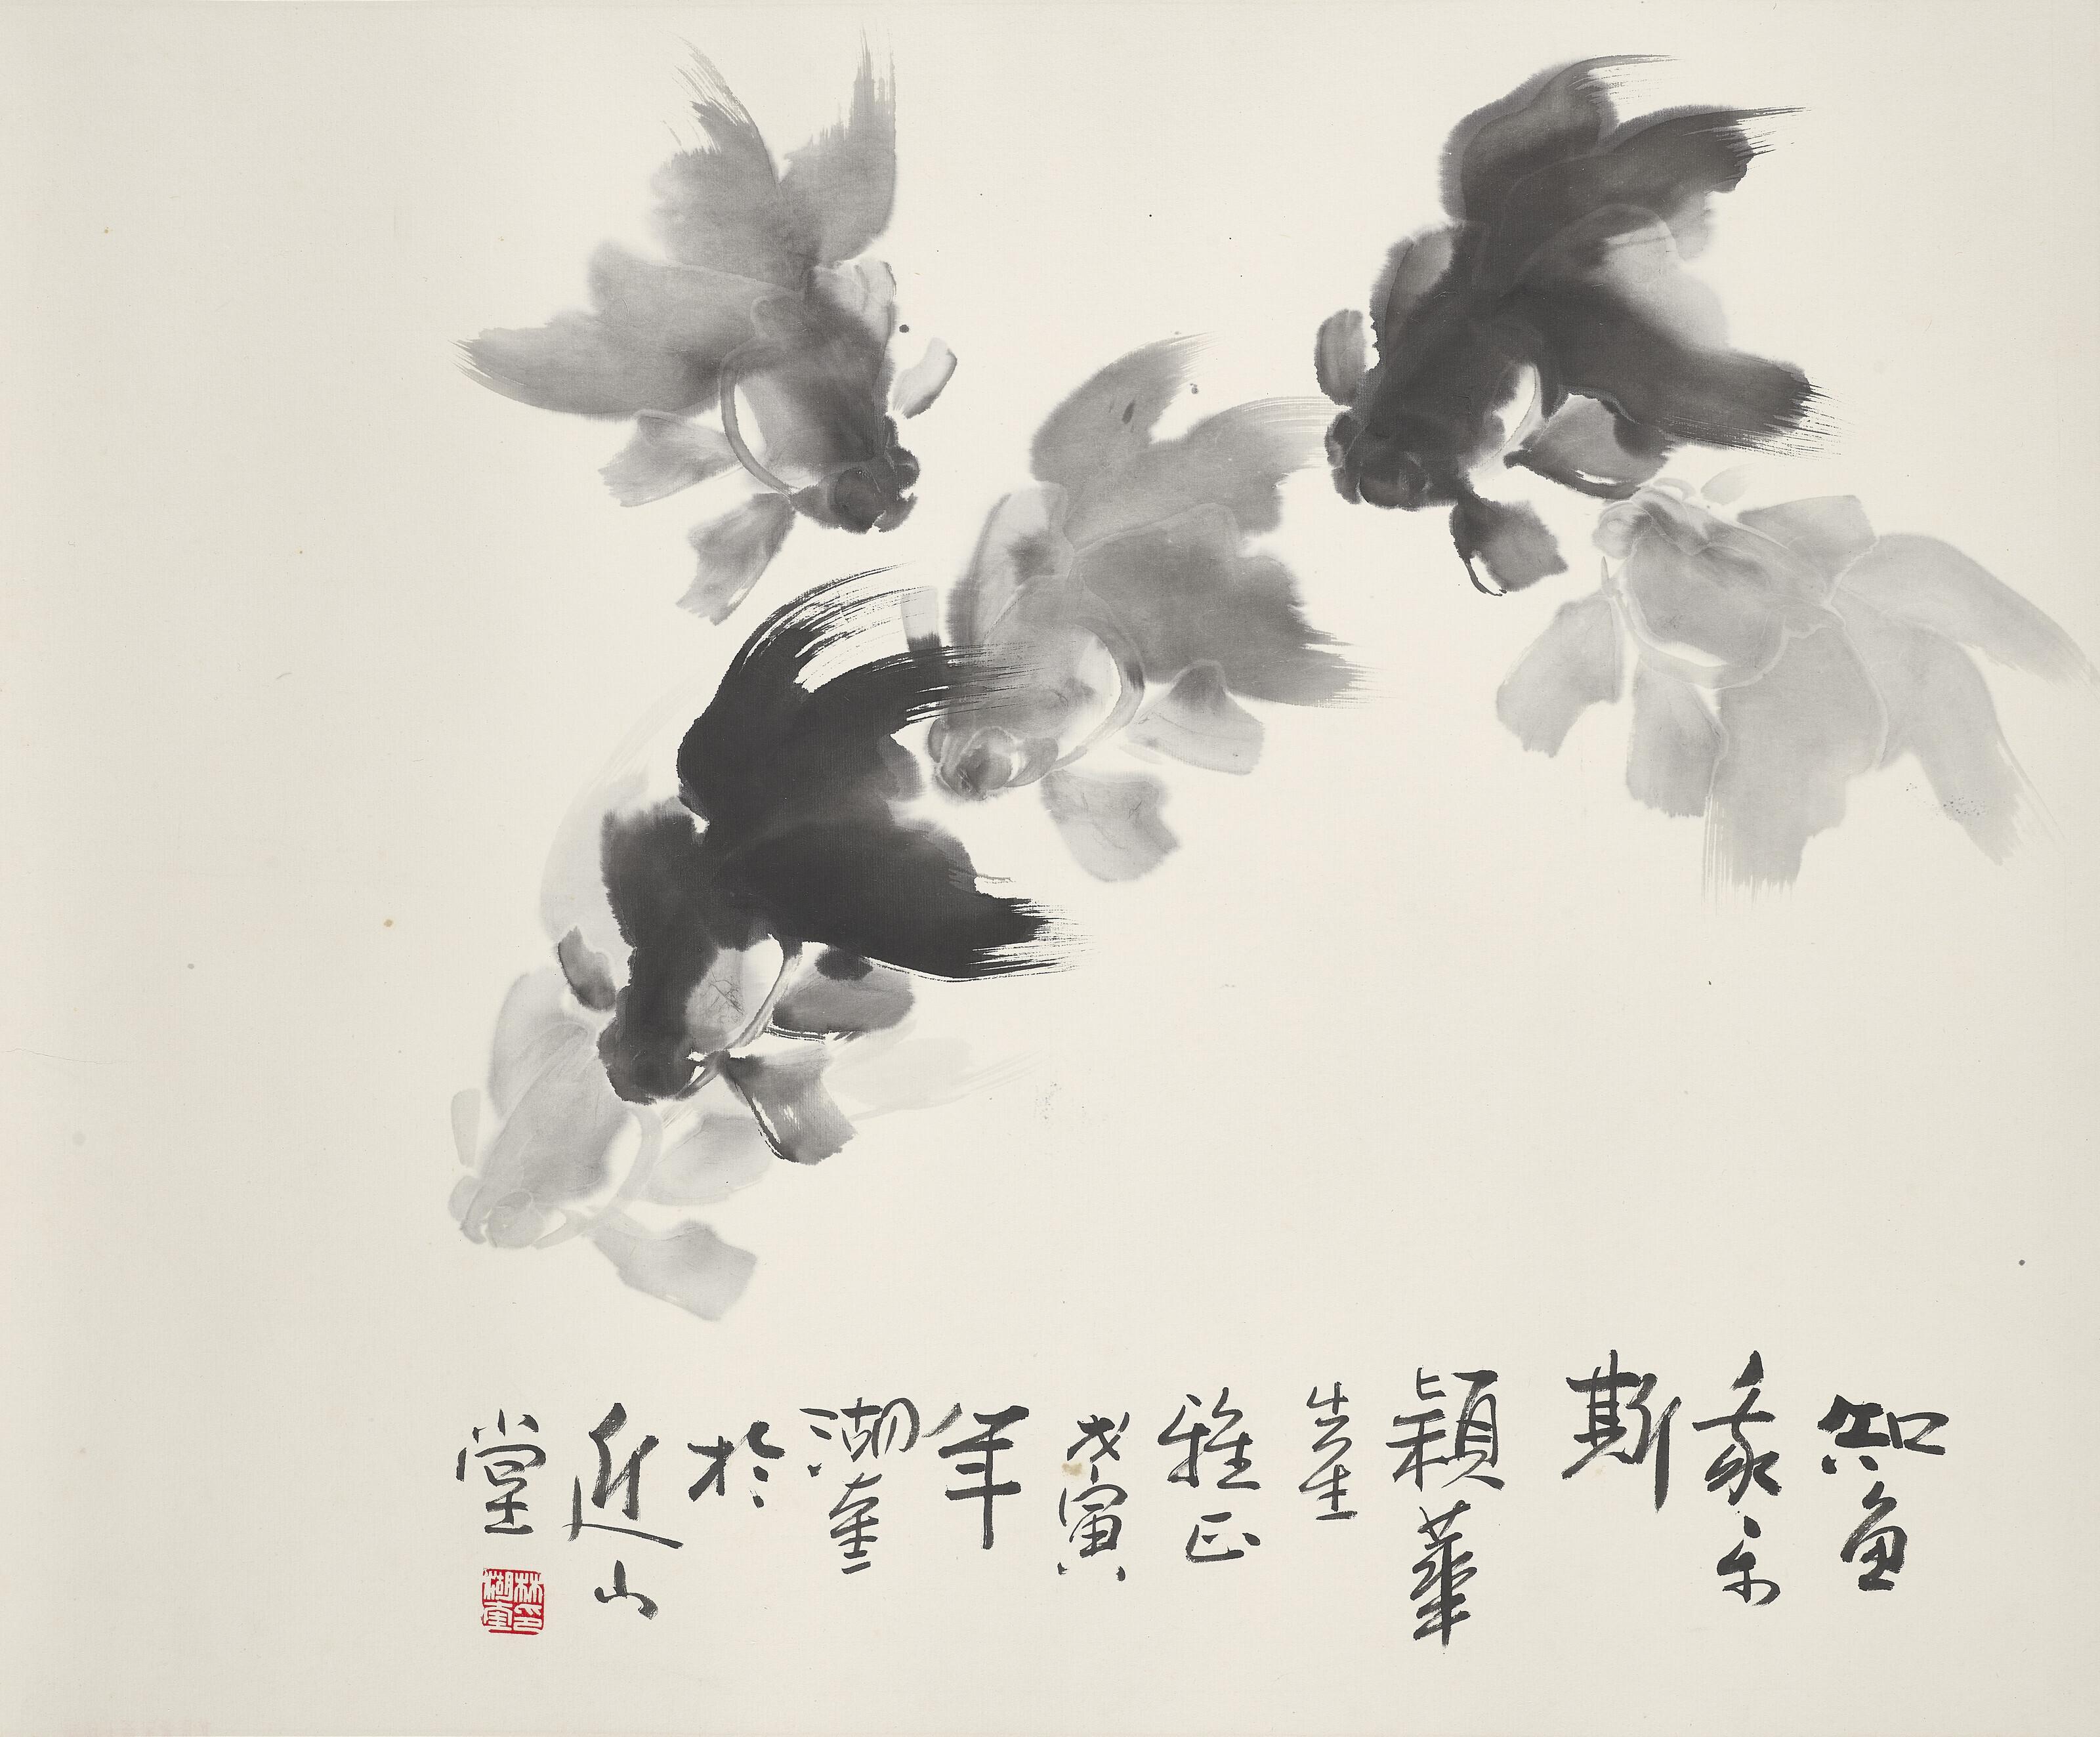 知魚
乐
斯
穎華
先生
雅正
戊寅
年
湖奎
於
近山
堂
林印
湖奎